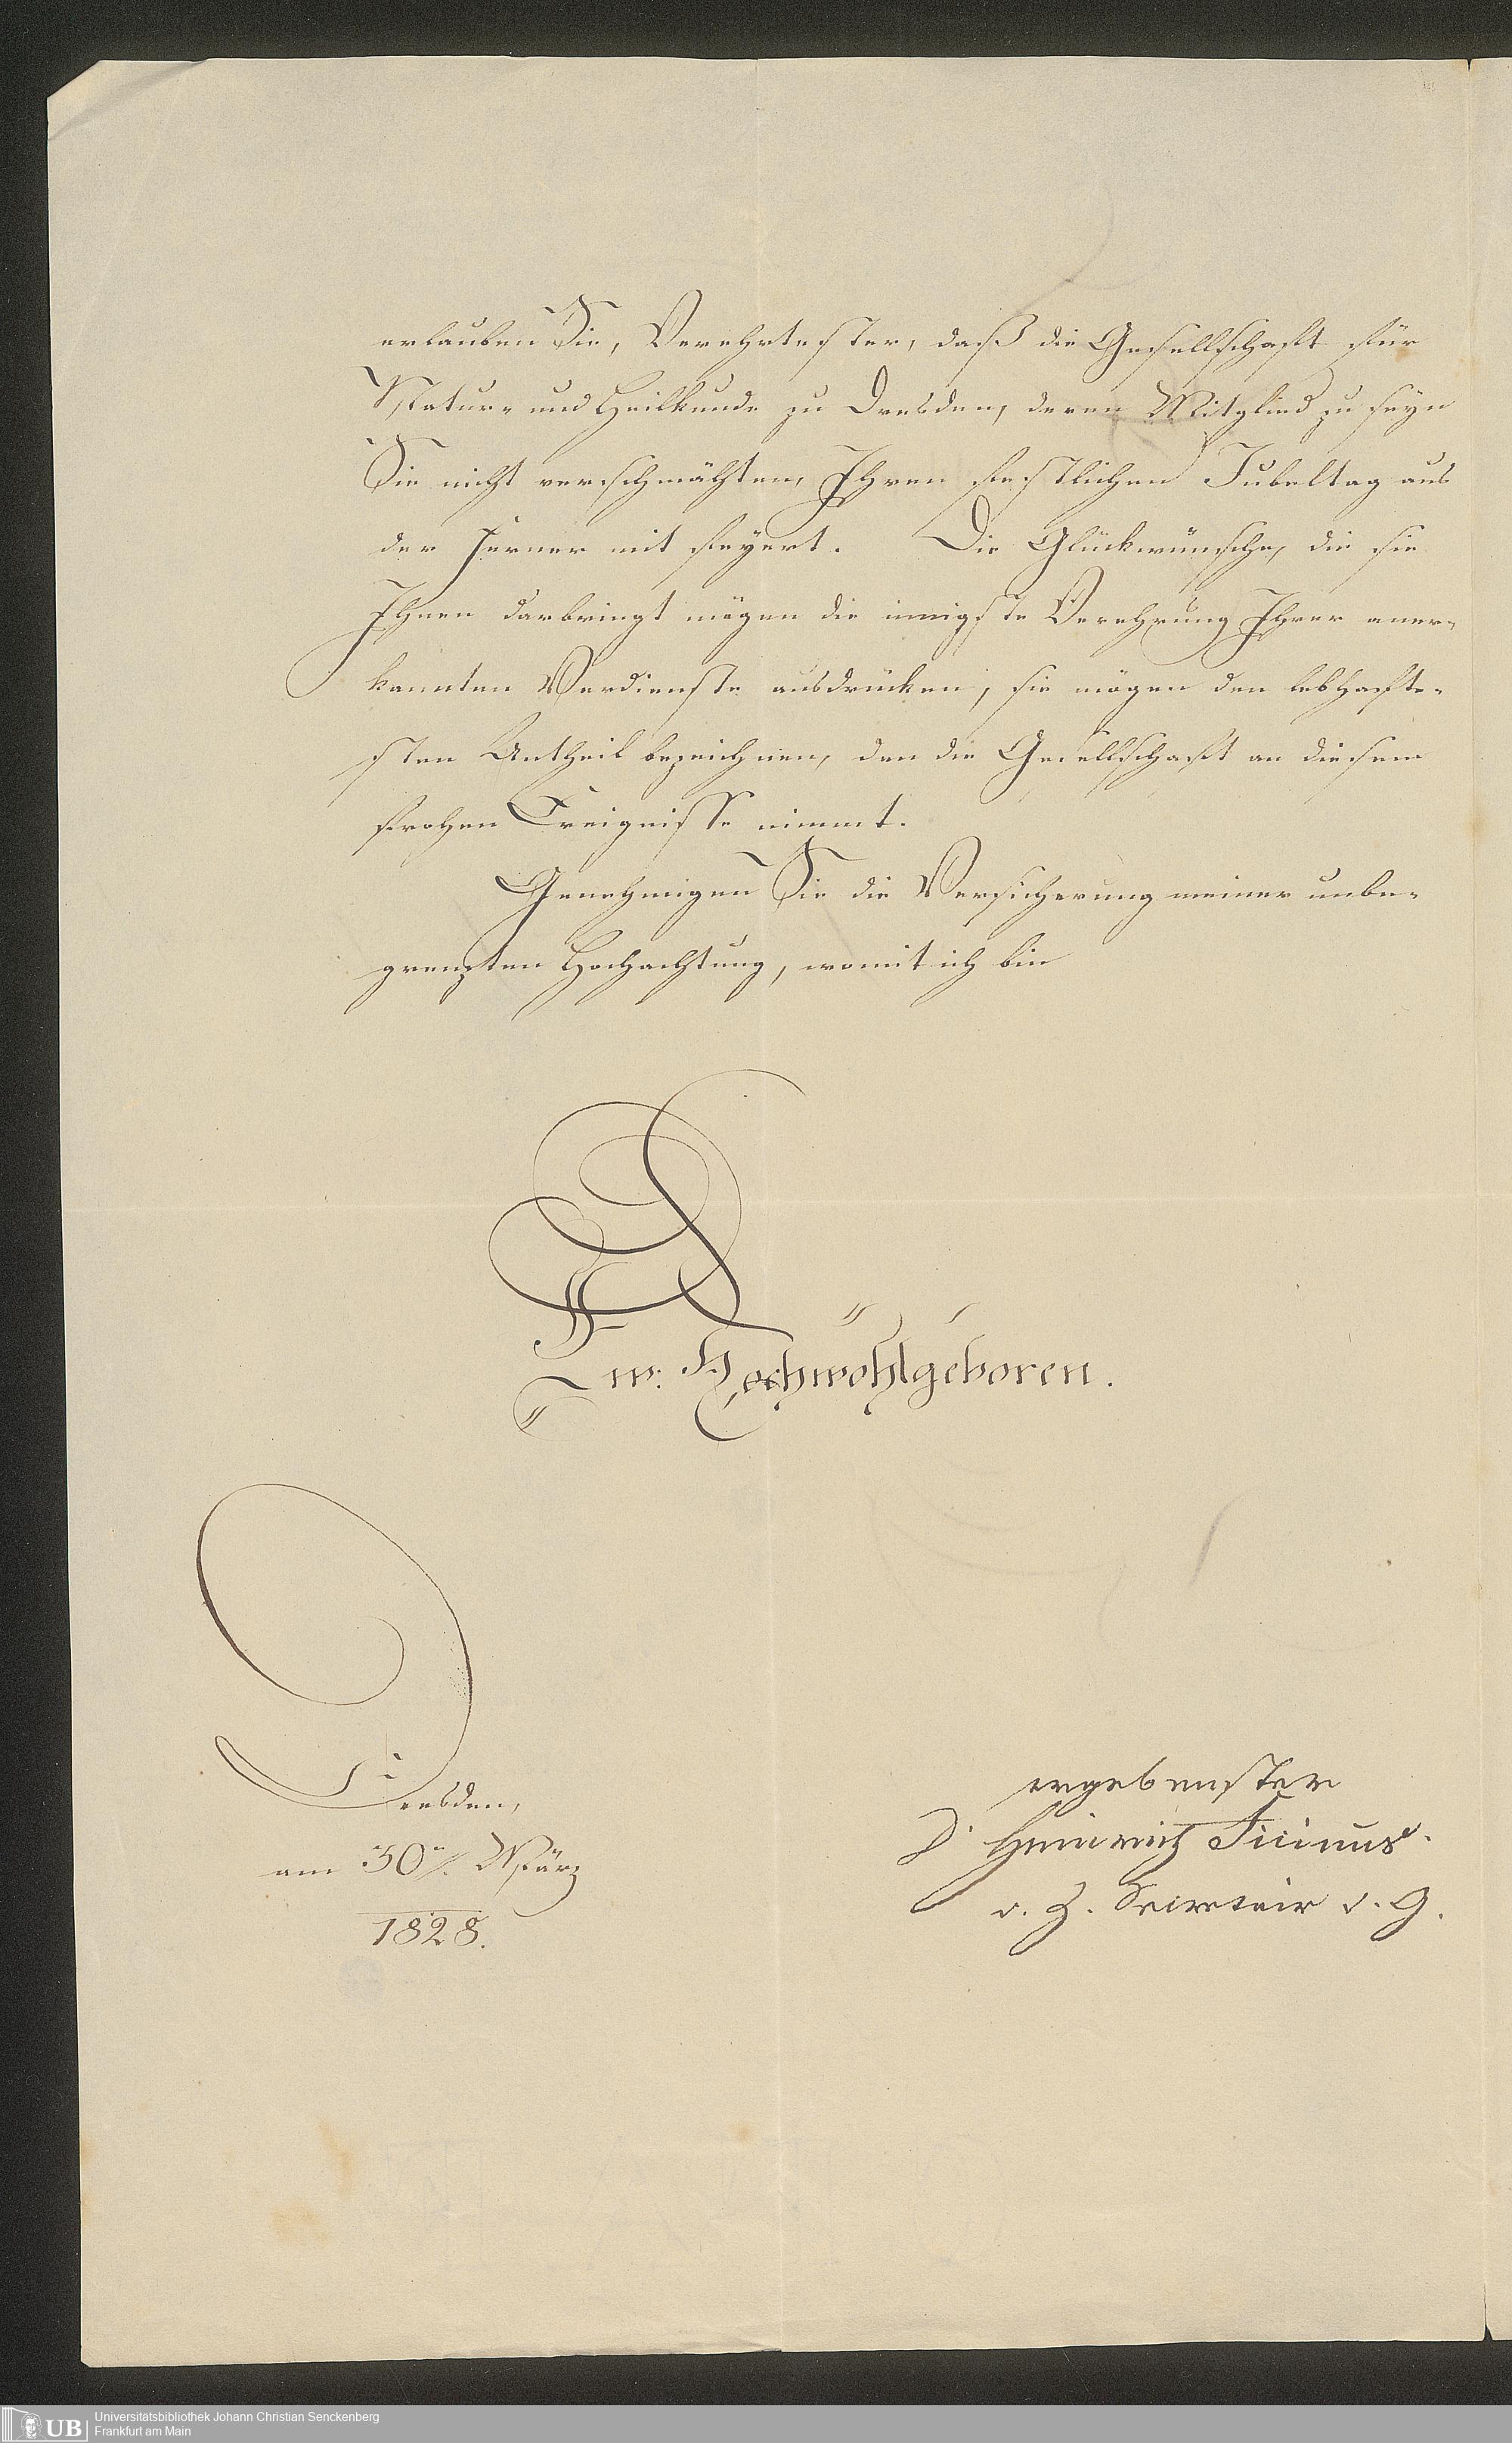 erlauben Sie, Verehrtester, daß die Gesellschaft für
Natur- und Heilkunde zu Dresden, deren Mitglied zu seyn
Sie nicht verschmähten, Ihren festlichen Jubeltag aus
der Ferne mit feyert. Die Glückwünsche, die sie
Ihnen darbringt mögen die innigste Verehrung Ihrer aner-
kannten Verdienste ausdrücken, sie mögen den lebhafte-
sten Antheil bezeichnen, den die Gesellschaft an diesem
frohen Ereignisse nimmt.
Genehmigen Sie die Versicherung meiner unbe-
grenzten Hochachtung, womit ich bin
Ew. Hochwohlgeboren.
Dresden,
am 30n März
1828.
ergebenster
D. Heinrich Ficinus.
d. Z. Secretair d. G.
UB
Universitätsbibliothek Johann Christian Senckenberg
Frankfurt am Main